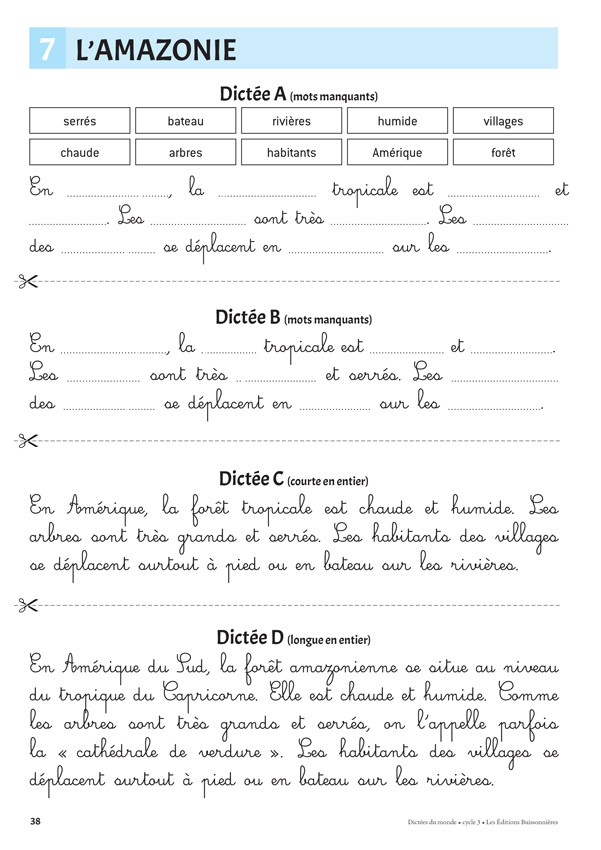 7 L'AMAZONIE
Dictée A (mots manquants)
serrés bateau rivières humide villages
chaude arbres habitants Amérique forêt
En ...................., la .................... tropicale est .................... et
..................... Les .................... sont très ..................... Les ....................
des .................... se déplacent en .................... sur les .....................
Dictée B (mots manquants)
En ...................., la ............ tropicale est .................... et .....................
Les .................... sont très .................... et serrés. Les ....................
des .................... se déplacent en .................... sur les .....................
Dictée C (courte en entier)
En Amérique, la forêt tropicale est chaude et humide. Les
arbres sont très grands et serrés. Les habitants des villages
se déplacent surtout à pied ou en bateau sur les rivières.
Dictée D (longue en entier)
En Amérique du Sud, la forêt amazonienne se situe au niveau
du tropique du Capricorne. Elle est chaude et humide. Comme
les arbres sont très grands et serrés, on l'appelle parfois
la « cathédrale de verdure ». Les habitants des villages se
déplacent surtout à pied ou en bateau sur les rivières.
38 Dictées du monde • cycle 3 • Les Éditions Buissonnières